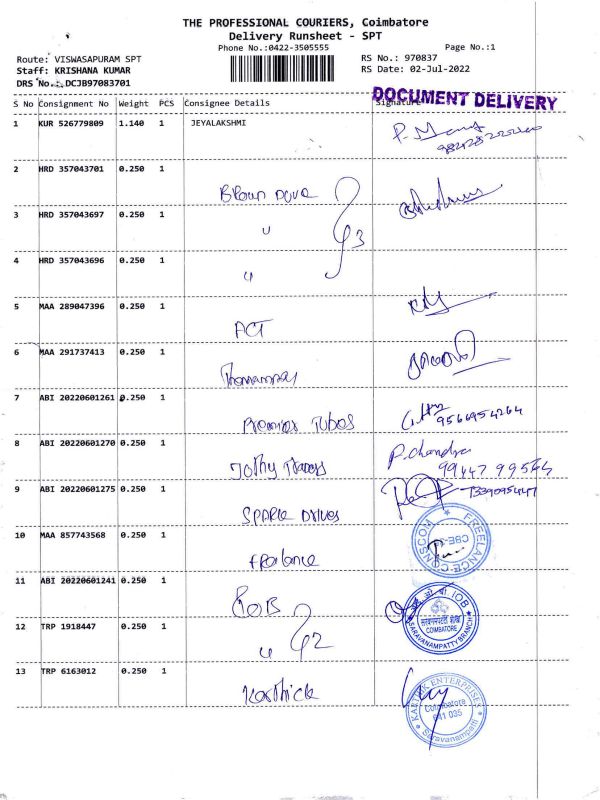 THE PROFESSIONAL COURIERS, Coimbatore
Delivery Runsheet - SPT
Phone No.:0422-3505555
Page No.:1
Route: VISWASAPURAM SPT
RS No.: 970837
Staff: KRISHANA KUMAR
RS Date: 02-Jul-2022
DRS No.:DCJB97083701
DOCUMENT DELIVERY
S No Consignment No Weight PCS Consignee Details Signature
1 KUR 526779809 1.140 1 JEYALAKSHMI
2 HRD 357043701 0.250 1
Brown Dove
3 HRD 357043697 0.250 1
〃 3
4 HRD 357043696 0.250 1
〃
5 MAA 289047396 0.250 1
ACT
6 MAA 291737413 0.250 1
7 ABI 20220601261 0.250 1
Premier Tubes 9566954264
8 ABI 20220601270 0.250 1
Jothy P.chandra
99447 99564
9 ABI 20220601275 0.250 1
SPARK DRIVES
10 MAA 857743568 0.250 1
Frelance
FREELANCE CONSCOM
CBE-
11 ABI 20220601241 0.250 1
IOB
आ ओ बी IOB
सरवनमपट्टी शाखा
COIMBATORE
SARAVANAMPATTY BRANCH
12 TRP 1918447 0.250 1
〃 2
13 TRP 6163012 0.250 1
Karthick
KARTHIK ENTERPRISES
Coimbatore
641 035
Saravanampatti